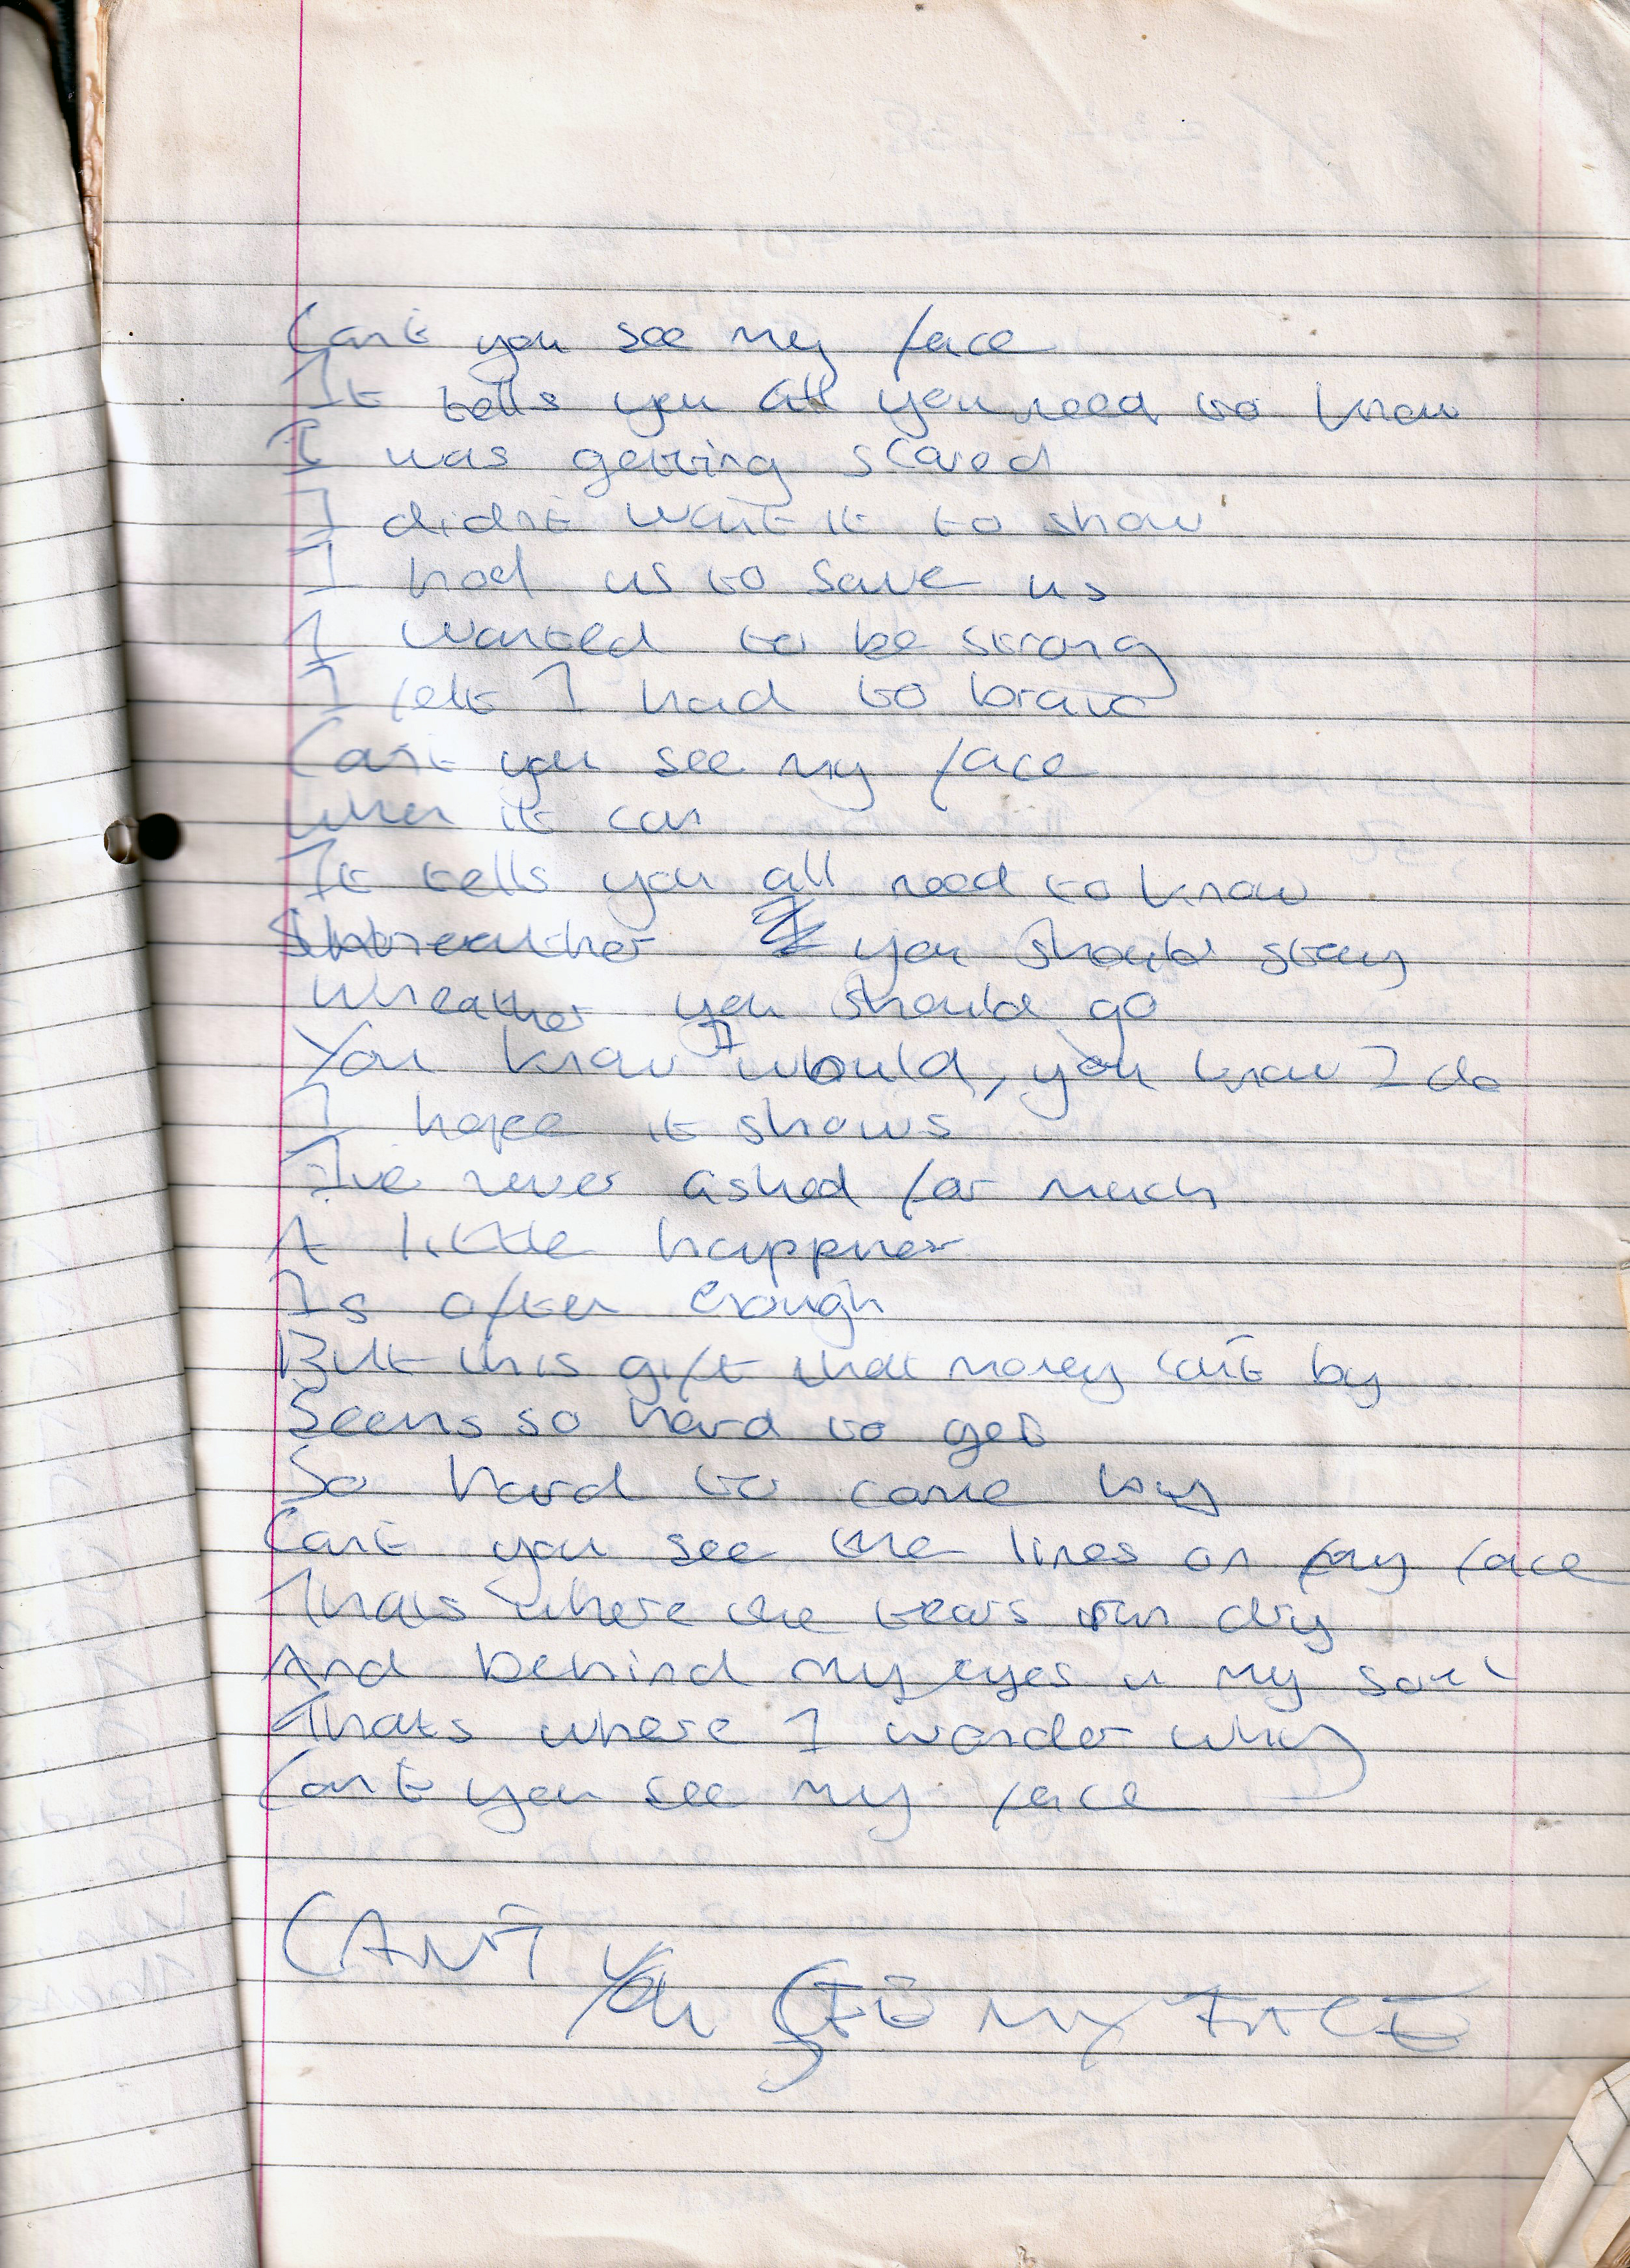 Can't you see my face
It tells you all you need to know
I was getting scared
I didn't want it to show
I had us to save us
I wanted to be strong
I felt I had to brave
Can't you see my face
when it can
It tells you all need to know
you should stay
Wheather you should go
You know I would, you know I do
I hope it shows
I've never asked for much
A little happpness
Is often enough
But this gift that money can't by
Seems so hard to get
So hard to come by
Can't you see the lines on my face
Thats where the tears run dry
And behind my eyes in my soul
Thats where I wonder why
Can't you see my face
CAN'T
You SEE MY FACE